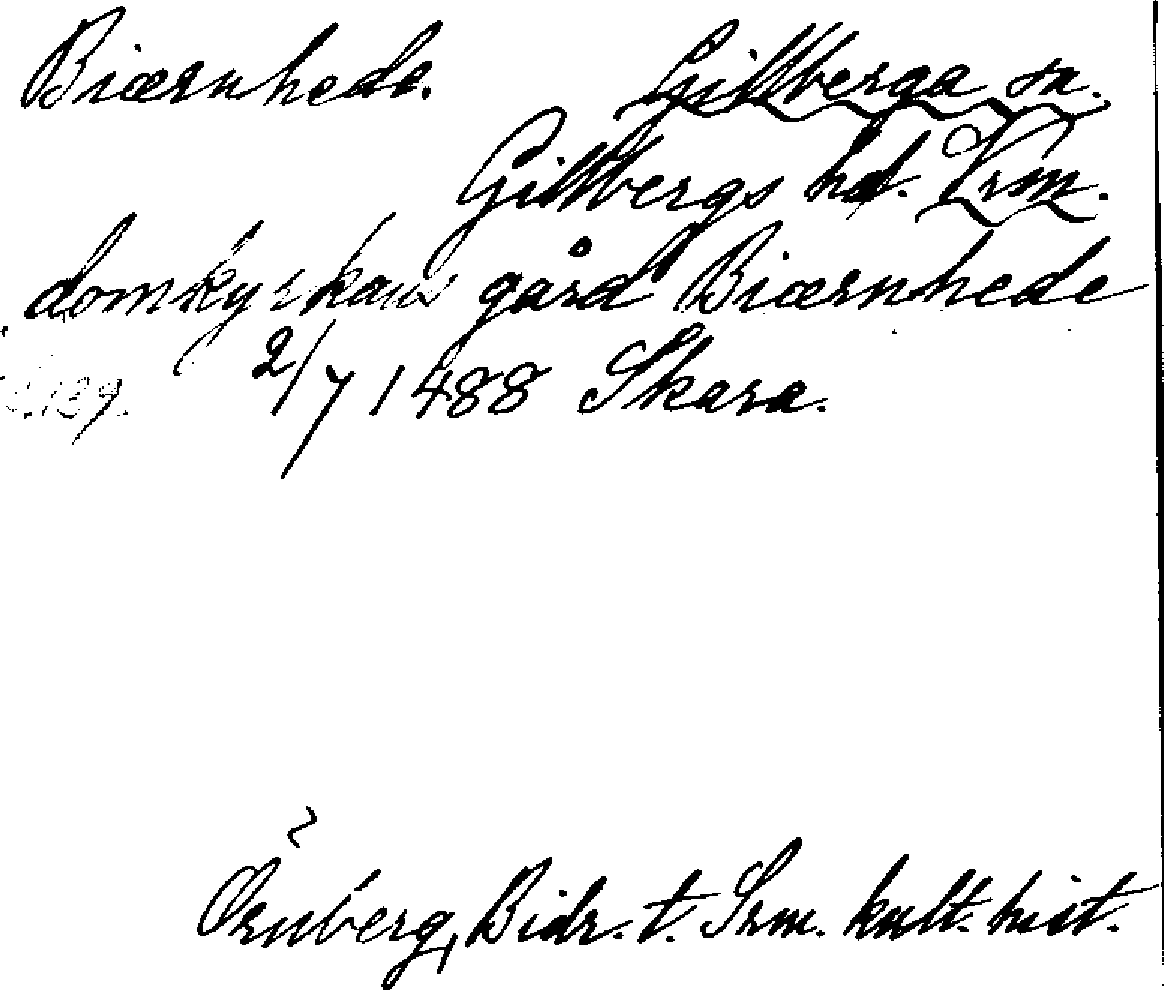 Biærnhede. Gillberga sn.
Gillbergs hd. Vrm.
domkyrkans gård Biærnhede
139. 2/7 1488 Skara.
Örnberg, Bidr. t. Srm. kult. hist.